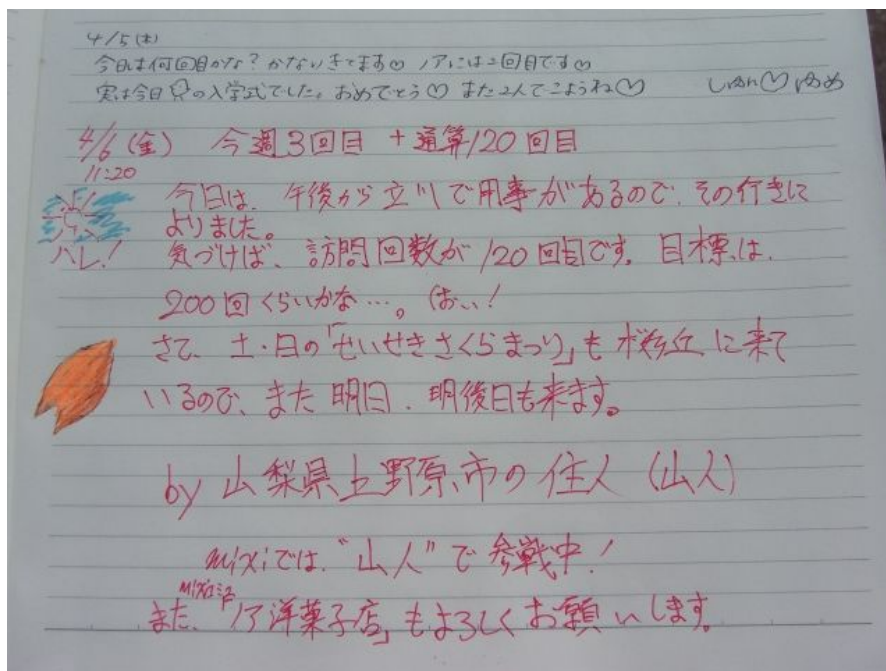 4/5(木)
今日は何回目かな？かないきてます♡ ノアには2回目です♡
実は今日の入学式でした。おめでとう♡ また2人でこようね♡
しゅん♡ゆめ
4/6(金) 今週3回目 + 通算120回目
11:20
今日は、午後から立川で用事があるので、その行きに
よりました。
ハレ!
気づけば、訪問回数が120回目です。目標は、
200回くらいかな…。(おいっ!
さて、土・日の「せいせきさくらまつり」も桜ヶ丘に来て
いるので、また明日、明後日も来ます。
by 山梨県上野原市の住人(山人)
mixiでは、"山人"で参戦中!
mixiコミュ
また、「ノア洋菓子店」もよろしくお願いします。